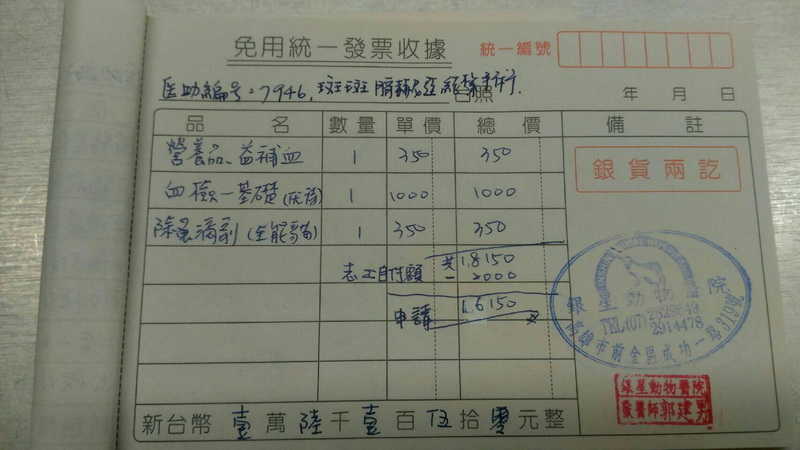 免用統一發票收據
統一編號
醫助編号:7946,斑斑
台照
年 月 日
品 名 數量 單價 總價 備註
營養品、益補血 1 350 350
血檢一基礎 1 1000 1000
除蚤滴劑(全能貓) 1 350 350
志工自付額 共 18150
-2000
申請 16150
銀貨兩訖
銀星動物 院
TEL(07)2829649
2914478
高雄市前金區成功一路319號
銀星動物醫院
獸醫師郭建男
新台幣 壹 萬 陸 千 壹 百 伍 拾 零 元整